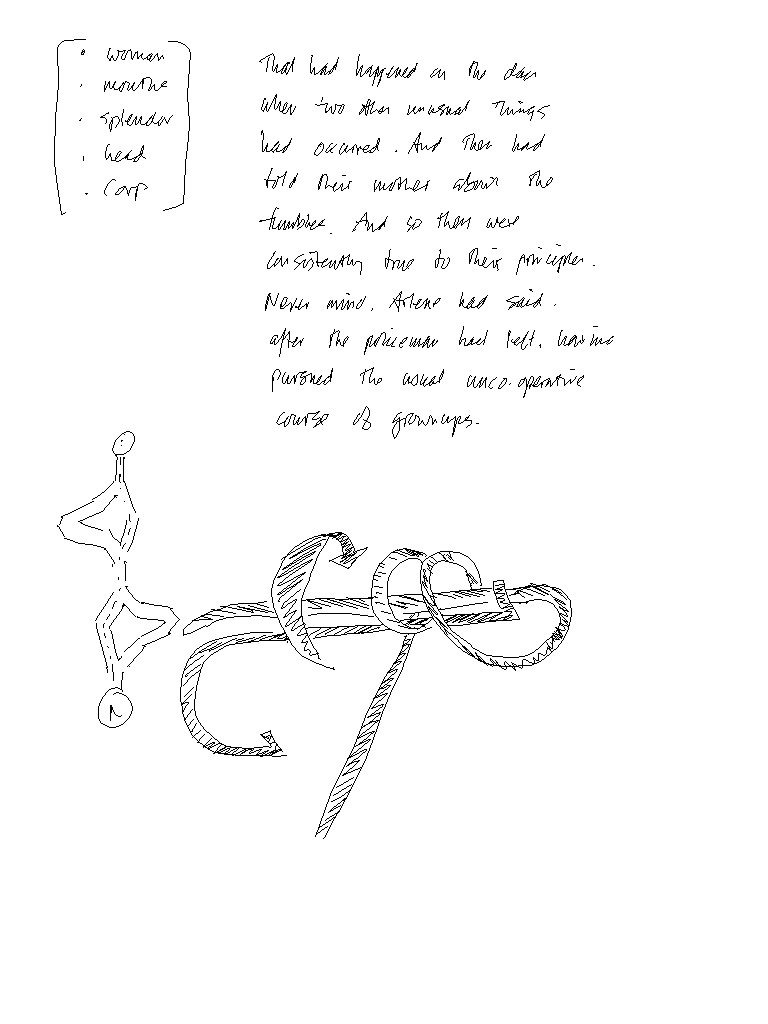 woman
mouthe
splendor
head
corp
That had happened on the day
when two other unusual things
had occurred. And they had
told their mother about the
And so they were
consistently true to their principles.
Never mind, Arlene had said.
after the policeman had left, having
pursued the usual unco-operative
course of grownups.
N